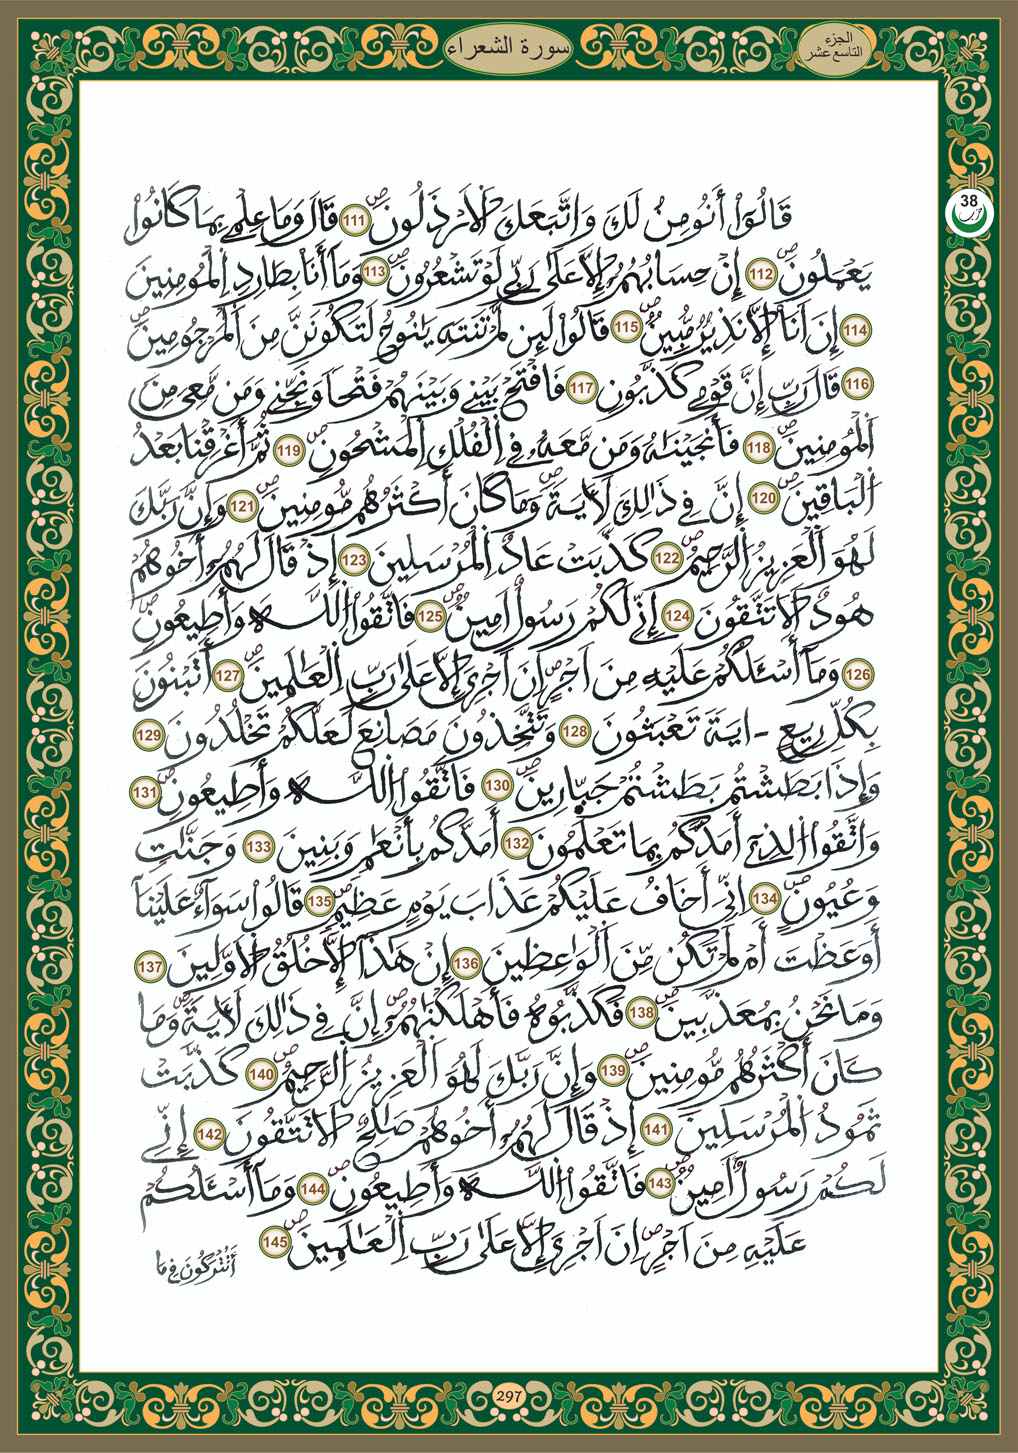 سورة الشعراء
الجزء
التاسع عشر
38
حزب
قَالُوٓاْ أَنُومِنُ لَكَ وَاتَّبَعَكَ اَلَارْذَلُونَۖ 111 قَالَ وَمَا عِلْمِے بِمَا كَانُواْ
يَعْمَلُونَۖ 112 إِنْ حِسَابُهُمُۥٓ إِلَّا عَلَىٰ رَبِّے لَوْ تَشْعُرُونَۖ 113 وَمَآ أَنَا بِطَارِدِ اِلْمُومِنِينَ
114 إِنَ اَنَآ إِلَّا نَذِيرٞ مُّبِينٞۖ 115 قَالُواْ لَئِن لَّمْ تَنتَهِ يَٰنُوحُ لَتَكُونَنَّ مِنَ اَلْمَرْجُومِينَۖ
116 قَالَ رَبِّ إِنَّ قَوْمِے كَذَّبُونِ 117 فَافْتَحْ بَيْنِے وَبَيْنَهُمْ فَتْحاٗ وَنَجِّنِے وَمَن مَّعِے مِنَ
اَلْمُومِنِينَۖ 118 فَأَنجَيْنَٰهُ وَمَن مَّعَهُۥ فِے اِلْفُلْكِ اِلْمَشْحُونِۖ 119 ثُمَّ أَغْرَقْنَا بَعْدُ
اُلْبَاقِينَۖ 120 إِنَّ فِے ذَٰلِكَ لَأٓيَةٗۖ وَمَا كَانَ أَكْثَرُهُم مُّومِنِينَۖ 121 وَإِنَّ رَبَّكَ
لَهُوَ اَلْعَزِيزُ اُلرَّحِيمُۖ 122 كَذَّبَتْ عَادٌ اُلْمُرْسَلِينَ 123 إِذْ قَالَ لَهُمُۥٓ أَخُوهُمْ
هُودٌ اَلَا تَتَّقُونَ 124 إِنِّے لَكُمْ رَسُولٌ اَمِينٞۖ 125 فَاتَّقُواْ اُللَّهَ وَأَطِيعُونِۖ
126 وَمَآ أَسْـَٔلُكُمْ عَلَيْهِ مِنَ اَجْرٍۖ اِنَ اَجْرِيَ إِلَّا عَلَىٰ رَبِّ اِلْعَٰلَمِينَۖ 127 أَتَبْنُونَ
بِكُلِّ رِيعٍ ـ ايَةٗ تَعْبَثُونَ 128 وَتَتَّخِذُونَ مَصَانِعَ لَعَلَّكُمْ تَخْلُدُونَ 129
وَإِذَا بَطَشْتُم بَطَشْتُمْ جَبّ۪ارِينَۖ 130 فَاتَّقُواْ اُللَّهَ وَأَطِيعُونِۖ 131
وَاتَّقُواْ اُلذِےٓ أَمَدَّكُم بِمَا تَعْلَمُونَ 132 أَمَدَّكُم بِأَنْعَٰمٖ وَبَنِينَ 133 وَجَنَّٰتٖ
وَعُيُونٍۖ 134 اِنِّيَ أَخَافُ عَلَيْكُمْ عَذَابَ يَوْمٍ عَظِيمٖۖ 135 قَالُواْ سَوَآءٌ عَلَيْنَآ
أَوَعَظْتَ أَمْ لَمْ تَكُن مِّنَ اَلْوَٰعِظِينَ 136 إِنْ هَٰذَآ إِلَّا خُلُقُ اُلَاوَّلِينَ 137
وَمَا نَحْنُ بِمُعَذَّبِينَۖ 138 فَكَذَّبُوهُ فَأَهْلَكْنَٰهُمُۥٓۖ إِنَّ فِے ذَٰلِكَ لَأٓيَةٗۖ وَمَا
كَانَ أَكْثَرُهُم مُّومِنِينَۖ 139 وَإِنَّ رَبَّكَ لَهُوَ اَلْعَزِيزُ اُلرَّحِيمُۖ 140 كَذَّبَتْ
ثَمُودُ اُلْمُرْسَلِينَ 141 إِذْ قَالَ لَهُمُۥٓ أَخُوهُمْ صَٰلِحٌ اَلَا تَتَّقُونَ 142 إِنِّے
لَكُمْ رَسُولٌ اَمِينٞۖ 143 فَاتَّقُواْ اُللَّهَ وَأَطِيعُونِۖ 144 وَمَآ أَسْـَٔلُكُمْ
عَلَيْهِ مِنَ اَجْرٍۖ اِنَ اَجْرِيَ إِلَّا عَلَىٰ رَبِّ اِلْعَٰلَمِينَۖ 145
أَتُتْرَكُونَ فِے مَا
297